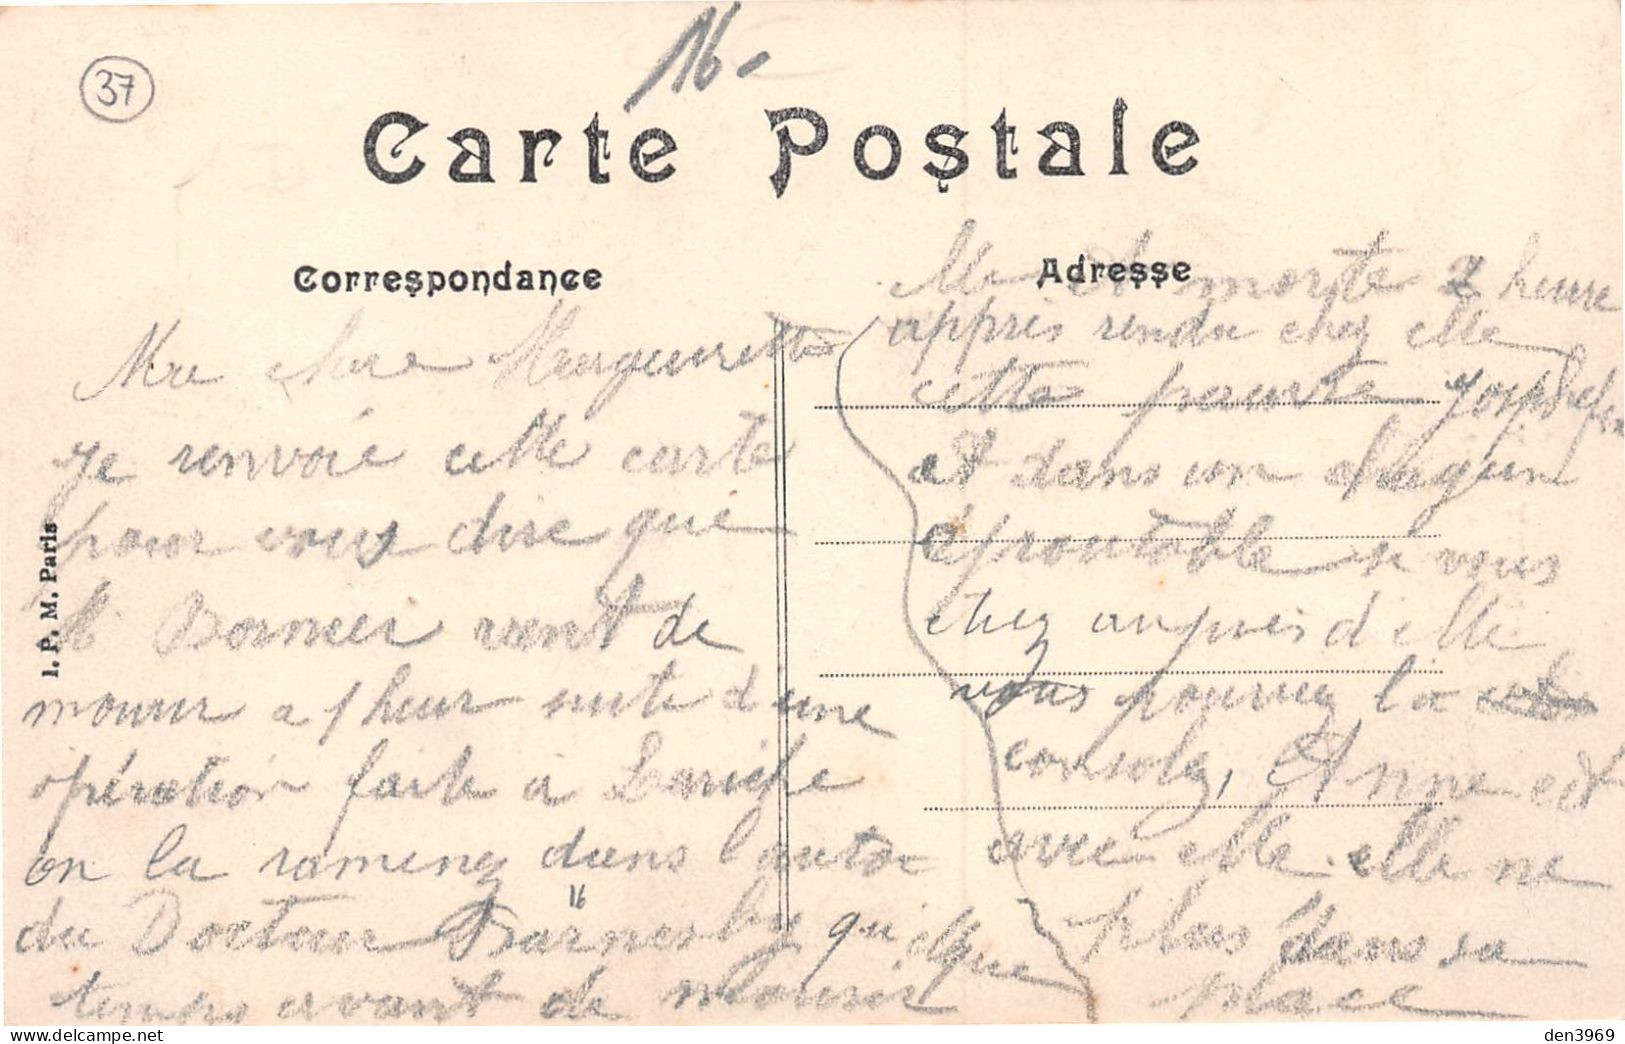 16-
37
Carte Postale
Correspondance
Adresse
I. P. M. Paris
Ma chère Marguerite
je renvoie cette carte
pour vous dire que
M Bornier vent de
mourir a 1 heur suite d une
opération faite à
on la ramenez dans l'auto
du Docteur Barnesby qui
temps avant de mourir
16
Elle et morte 2 heure
appris rendu chez elle
cette pauvre
et dans un chagrin
éproutable si vous
etiez auprès d elle
vous pourriez la
consolez, Anne est
avec elle. elle ne
plus dans sa
place
den3969